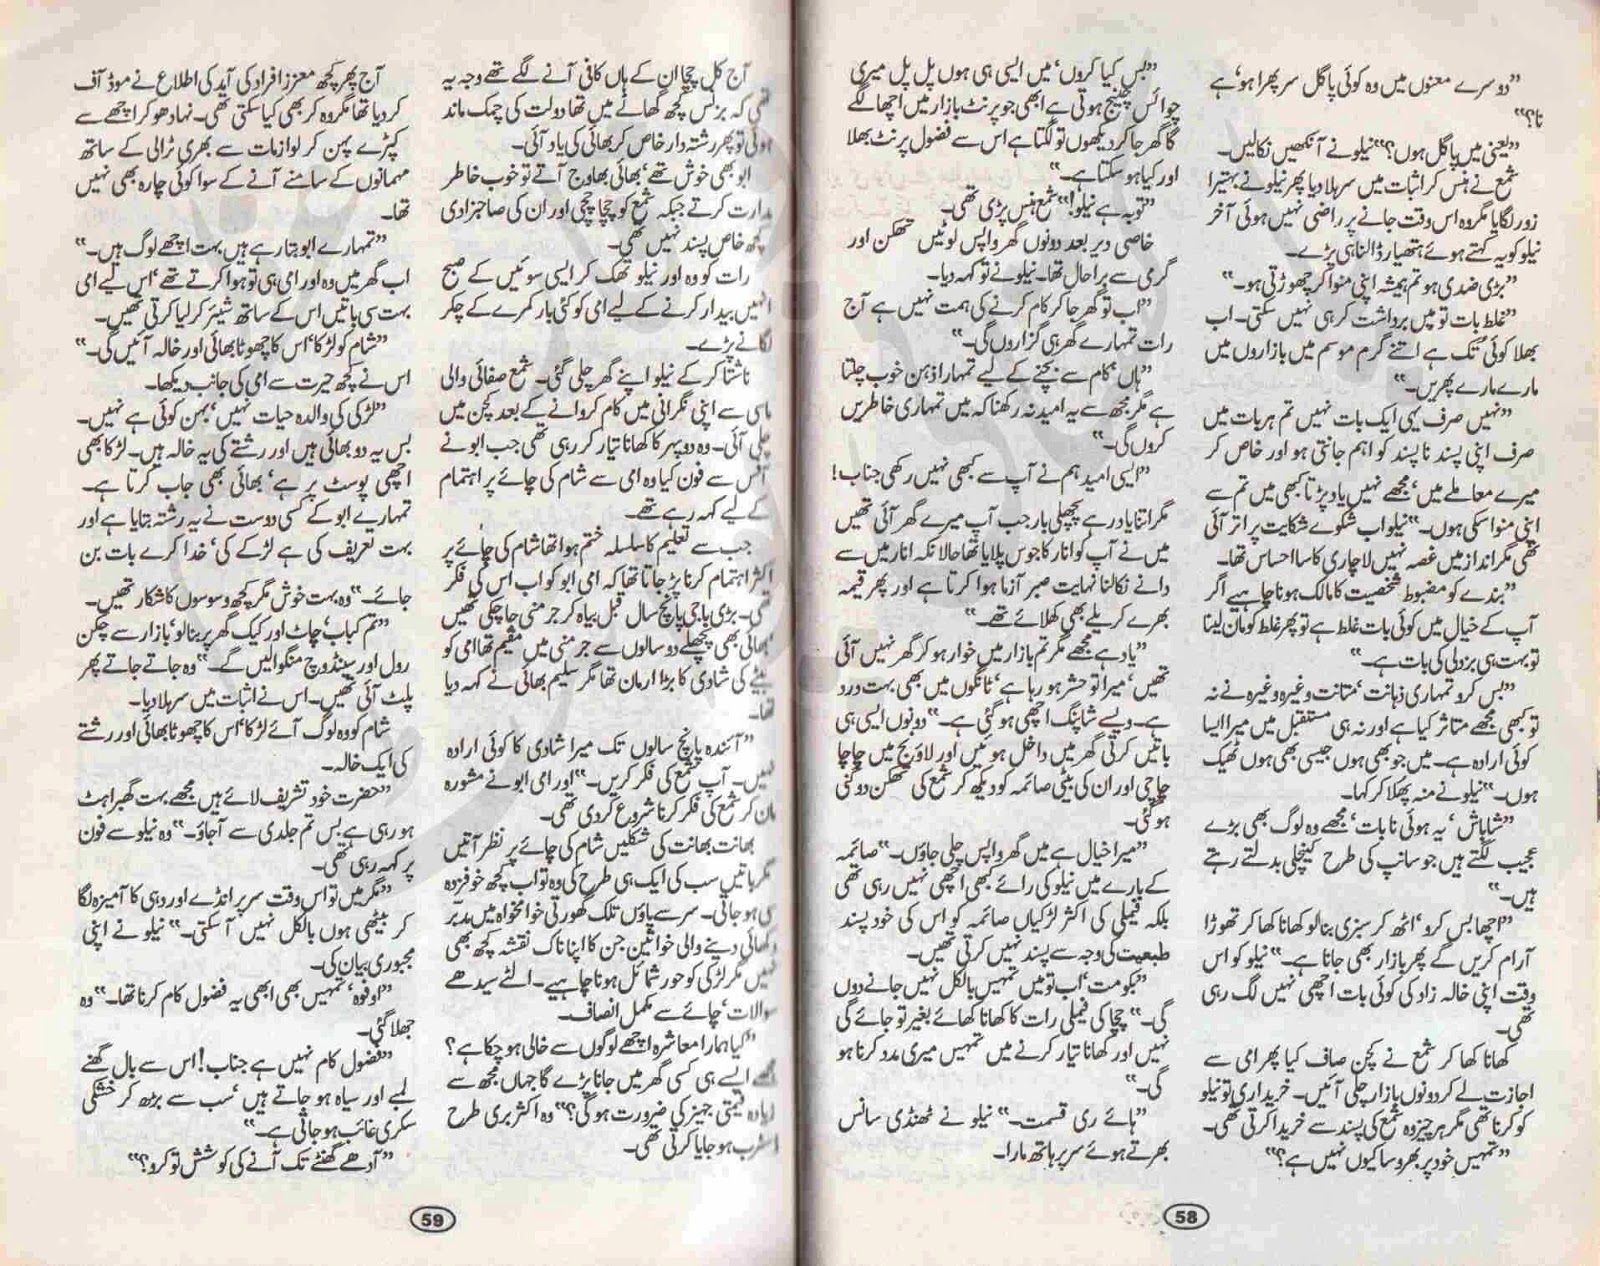 ”دوسرے معنوں میں وہ کوئی پاگل سر پھرا ہو‘ ہے
نا؟“
”یعنی میں پاگل ہوں؟“ نیلو نے آنکھیں نکالیں۔
شمع نے ہنس کر اثبات میں سر ہلا دیا پھر نیلو نے بہتیرا
زور لگایا مگر وہ اس وقت جانے پر راضی نہیں ہوئی آخر
نیلو کو یہ کہتے ہوئے ہتھیار ڈالنا ہی پڑے۔
”بڑی ضدی ہو تم ہمیشہ اپنی منوا کر چھوڑتی ہو۔“
”غلط بات تو میں برداشت کر ہی نہیں سکتی۔ اب
بھلا کوئی تُک ہے اتنے گرم موسم میں بازاروں میں
مارے مارے پھریں۔“
”نہیں صرف یہی ایک بات نہیں تم ہر بات میں
صرف اپنی پسند ناپسند کو اہم جانتی ہو اور خاص کر
میرے معاملے میں‘ مجھے نہیں یاد پڑتا کبھی میں تم سے
اپنی منوا سکی ہوں۔“ نیلو اب شکوے شکایت پر اتر آئی
تھی مگر انداز میں غصہ نہیں لاچاری کا سا احساس تھا۔
”بندے کو مضبوط شخصیت کا مالک ہونا چاہیے اگر
آپ کے خیال میں کوئی بات غلط ہے تو پھر غلط کو مان لینا
تو بہت ہی بزدلی کی بات ہے۔“
”بس کرو تمہاری ذہانت‘ متانت وغیرہ وغیرہ نے نہ
تو کبھی مجھے متاثر کیا ہے اور نہ ہی مستقبل میں میرا ایسا
کوئی ارادہ ہے۔ میں جو بھی ہوں جیسی بھی ہوں ٹھیک
ہوں۔“ نیلو نے منہ پھلا کر کہا۔
”شاباش‘ یہ ہوئی نا بات‘ مجھے وہ لوگ بھی بڑے
عجیب لگتے ہیں جو سانپ کی طرح کینچلی بدلتے رہتے
ہیں۔“
”اچھا بس کرو‘ اٹھ کر سبزی بنا لو کھانا کھا کر تھوڑا
آرام کریں گے پھر بازار بھی جانا ہے۔“ نیلو کو اس
وقت اپنی خالہ زاد کی کوئی بات اچھی نہیں لگ رہی
تھی۔
کھانا کھا کر شمع نے کچن صاف کیا پھر امی سے
اجازت لے کر دونوں بازار چلی آئیں۔ خریداری تو نیلو
کو کرنا تھی مگر ہر چیز وہ شمع کی پسند سے خریدا کرتی تھی۔
”تمہیں خود پر بھروسا کیوں نہیں ہے؟“
”بس کیا کروں‘ میں ایسی ہی ہوں پل پل میری
چوائس چینج ہوتی ہے ابھی جو پرنٹ بازار میں اچھا لگے
گا گھر جا کر دیکھوں تو لگتا ہے اس سے فضول پرنٹ بھلا
اور کیا ہو سکتا ہے۔“
”توبہ ہے نیلو!“ شمع ہنس پڑی تھی۔
خاصی دیر بعد دونوں گھر واپس لوٹیں تھکن اور
گرمی سے برا حال تھا۔ نیلو نے تو کہہ دیا۔
”اب تو گھر جا کر کام کرنے کی ہمت نہیں ہے آج
رات تمہارے گھر ہی گزاروں گی۔“
”ہاں‘ کام سے بچنے کے لیے تمہارا ذہن خوب چلتا
ہے مگر مجھ سے یہ امید نہ رکھنا کہ میں تمہاری خاطریں
کروں گی۔“
”ایسی امید ہم نے آپ سے کبھی نہیں رکھی جناب!
مگر اتنا یاد رہے پچھلی بار جب آپ میرے گھر آئی تھیں
میں نے آپ کو انار کا جوس پلایا تھا حالانکہ انار میں سے
دانے نکالنا نہایت صبر آزما ہوا کرتا ہے اور پھر قیمہ
بھرے کریلے بھی کھلائے تھے۔“
”یاد ہے مجھے مگر تم بازار میں خوار ہو کر گھر نہیں آئی
تھیں‘ میرا تو حشر ہو رہا ہے‘ ٹانگوں میں بھی بہت درد
ہے۔ ویسے شاپنگ اچھی ہو گئی ہے۔“ دونوں ایسی ہی
باتیں کرتی گھر میں داخل ہوئیں اور لاؤنج میں چاچا
چاچی اور ان کی بیٹی صائمہ کو دیکھ کر شمع کی تھکن دوگنی
ہو گئی۔
”میرا خیال ہے میں گھر واپس چلی جاؤں۔“ صائمہ
کے بارے میں نیلو کی رائے کبھی اچھی نہیں رہی تھی
بلکہ فیملی کی اکثر لڑکیاں صائمہ کو اس کی خود پسند
طبیعت کی وجہ سے پسند نہیں کرتی تھیں۔
”بکو مت‘ اب تو میں تمہیں بالکل نہیں جانے دوں
گی۔“ چچا کی فیملی رات کا کھانا کھائے بغیر تو جائے گی
نہیں اور کھانا تیار کرنے میں تمہیں میری مدد کرنا ہو
گی۔“
”ہائے ری قسمت۔“ نیلو نے ٹھنڈی سانس
بھرتے ہوئے سر پر ہاتھ مارا۔
58
آج کل چچا ان کے ہاں کافی آنے لگے تھے وجہ یہ
تھی کہ بزنس کچھ گھاٹے میں تھا دولت کی چمک ماند
ہوئی تو پھر رشتہ دار خاص کر بھائی کی یاد آئی۔
ابو بھی خوش تھے‘ بھائی بھاوج آتے تو خوب خاطر
مدارت کرتے جبکہ شمع کو چچا چچی اور ان کی صاحبزادی
کچھ خاص پسند نہیں تھی۔
رات کو وہ اور نیلو تھک کر ایسی سوئیں کے صبح
انہیں بیدار کرنے کے لیے امی کو کئی بار کمرے کے چکر
لگانے پڑے۔
ناشتا کر کے نیلو اپنے گھر چلی گئی۔ شمع صفائی والی
ماسی سے اپنی نگرانی میں کام کروانے کے بعد کچن میں
چلی آئی۔ وہ دوپہر کا کھانا تیار کر رہی تھی جب ابو نے
آفس سے فون کیا وہ امی سے شام کی چائے پر اہتمام
کے لیے کہہ رہے تھے۔
جب سے تعلیم کا سلسلہ ختم ہوا تھا شام کی چائے پر
اکثر اہتمام کرنا پڑ جاتا تھا کہ امی ابو کو اب اس کی فکر
تھی۔ بڑی باجی پانچ سال قبل بیاہ کر جرمنی جا چکی تھیں
بھائی بھی پچھلے دو سالوں سے جرمنی میں مقیم تھا امی کو
بیٹے کی شادی کا بڑا ارمان تھا مگر سلیم بھائی نے کہہ دیا
تھا۔
”آئندہ پانچ سالوں تک میرا شادی کا کوئی ارادہ
نہیں۔ آپ شمع کی فکر کریں۔“ اور امی ابو نے مشورہ
مان کر شمع کی فکر کرنا شروع کر دی تھی۔
بھانت بھانت کی شکلیں شام کی چائے پر نظر آتیں
مگر باتیں سب کی ایک ہی طرح کی وہ تو اب کچھ خوفزدہ
سی ہو جاتی۔ سر سے پاؤں تلک گھورتی خوامخواہ میں مدبر
دکھائی دینے والی خواتین جن کا اپنا ناک نقشہ کچھ بھی
نہیں مگر لڑکی کو حور شمائل ہونا چاہیے۔ الٹے سیدھے
سوالات‘ چائے سے مکمل انصاف۔
”کیا ہمارا معاشرہ اچھے لوگوں سے خالی ہو چکا ہے؟
مجھے ایسے ہی کسی گھر میں جانا پڑے گا جہاں مجھ سے
زیادہ قیمتی جہیز کی ضرورت ہوگی؟“ وہ اکثر بری طرح
مضطرب ہو جایا کرتی تھی۔
آج پھر کچھ معزز افراد کی آمد کی اطلاع نے موڈ آف
کر دیا تھا مگر وہ کر بھی کیا سکتی تھی۔ نہا دھو کر اچھے سے
کپڑے پہن کر لوازمات سے بھری ٹرالی کے ساتھ
مہمانوں کے سامنے آنے کے سوا کوئی چارہ بھی نہیں
تھا۔
”تمہارے ابو بتا رہے ہیں بہت اچھے لوگ ہیں۔“
اب گھر میں وہ اور امی ہی تو ہوا کرتے تھے‘ اس لیے امی
بہت سی باتیں اس کے ساتھ شیئر کر لیا کرتی تھیں۔
”شام کو لڑکا‘ اس کا چھوٹا بھائی اور خالہ آئیں گی۔“
اس نے کچھ حیرت سے امی کی جانب دیکھا۔
”لڑکی کی والدہ حیات نہیں‘ بہن کوئی ہے نہیں۔
بس یہ دو بھائی ہیں اور رشتے کی یہ خالہ ہیں۔ لڑکا بھی
اچھی پوسٹ پر ہے‘ بھائی بھی جاب کرتا ہے۔
تمہارے ابو کے کسی دوست نے یہ رشتہ بتایا ہے اور
بہت تعریف کی ہے لڑکے کی‘ خدا کرے بات بن
جائے۔“ وہ بہت خوش مگر کچھ وسوسوں کا شکار تھیں۔
”تم کباب‘ چاٹ اور کیک گھر پر بنا لو‘ بازار سے چکن
رول اور سینڈوچ منگوا لیں گے۔“ وہ جاتے جاتے پھر
پلٹ آئی تھیں۔ اس نے اثبات میں سر ہلا دیا۔
شام کو وہ لوگ آئے لڑکا‘ اس کا چھوٹا بھائی اور رشتے
کی ایک خالہ۔
”حضرت خود تشریف لائے ہیں مجھے بہت گھبراہٹ
ہو رہی ہے بس تم جلدی سے آ جاؤ۔“ وہ نیلو سے فون
پر کہہ رہی تھی۔
”مگر میں تو اس وقت سر پر انڈے اور دہی کا آمیزہ لگا
کر بیٹھی ہوں بالکل نہیں آ سکتی۔“ نیلو نے اپنی
مجبوری بیان کی۔
”اوفوہ‘ تمہیں بھی ابھی یہ فضول کام کرنا تھا۔“ وہ
جھلا گئی۔
”فضول کام نہیں ہے جناب! اس سے بال گھنے
لمبے اور سیاہ ہو جاتے ہیں‘ سب سے بڑھ کر خشکی
سکری غائب ہو جاتی ہے۔“
”آدھے گھنٹے تک آنے کی کوشش تو کرو؟“
59